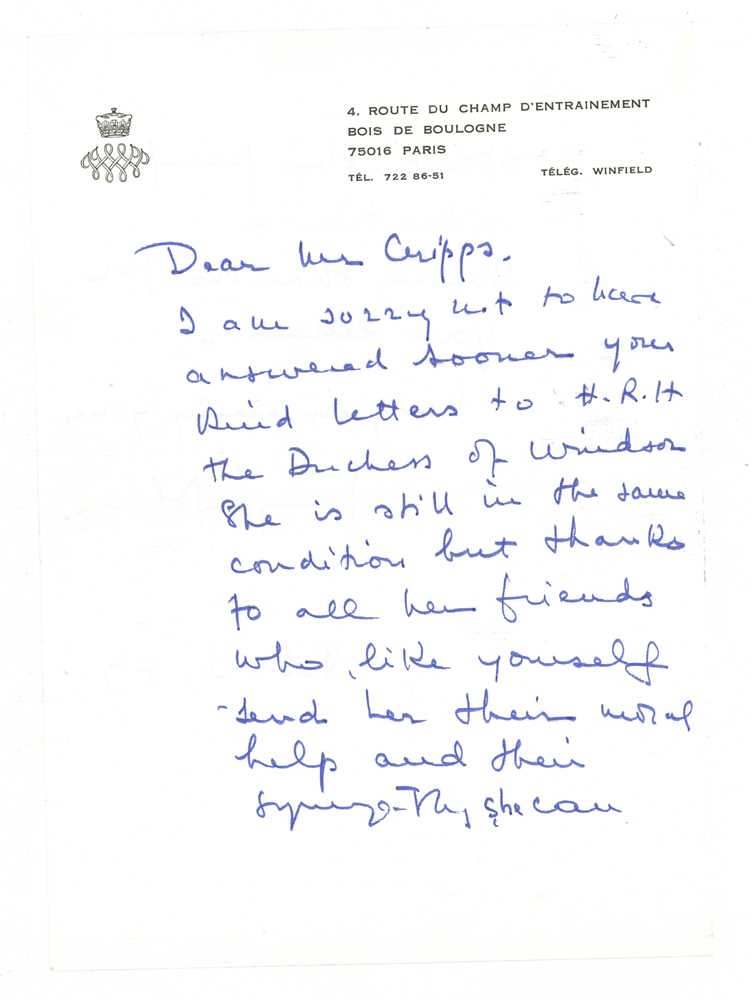 4, ROUTE DU CHAMP D'ENTRAINEMENT
BOIS DE BOULOGNE
75016 PARIS
TÉL. 722 86-51 TÉLÉG. WINFIELD
Dear Mr Cripps.
I am sorry not to have
answered sooner your
kind letters to H.R.H
the Duchess of Windsor
She is still in the same
condition but thanks
to all her friends
who, like yourself
send her their moral
help and their
sympathy, she can